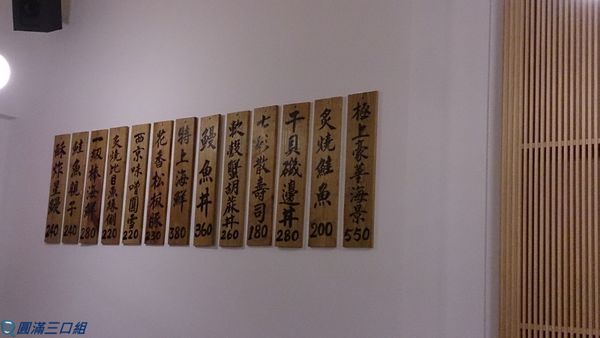 極上豪華海景
550
炙燒鮭魚
200
干貝磯邊丼
280
七彩散壽司
180
軟殼蟹胡麻丼
260
鰻魚丼
360
特上海鮮
380
花香松板豚
230
西京味噌圓雪
220
炙燒比目魚緣側
220
一級棒海鮮
280
鮭魚親子
240
酥炸星鰻
240
圓滿三口組